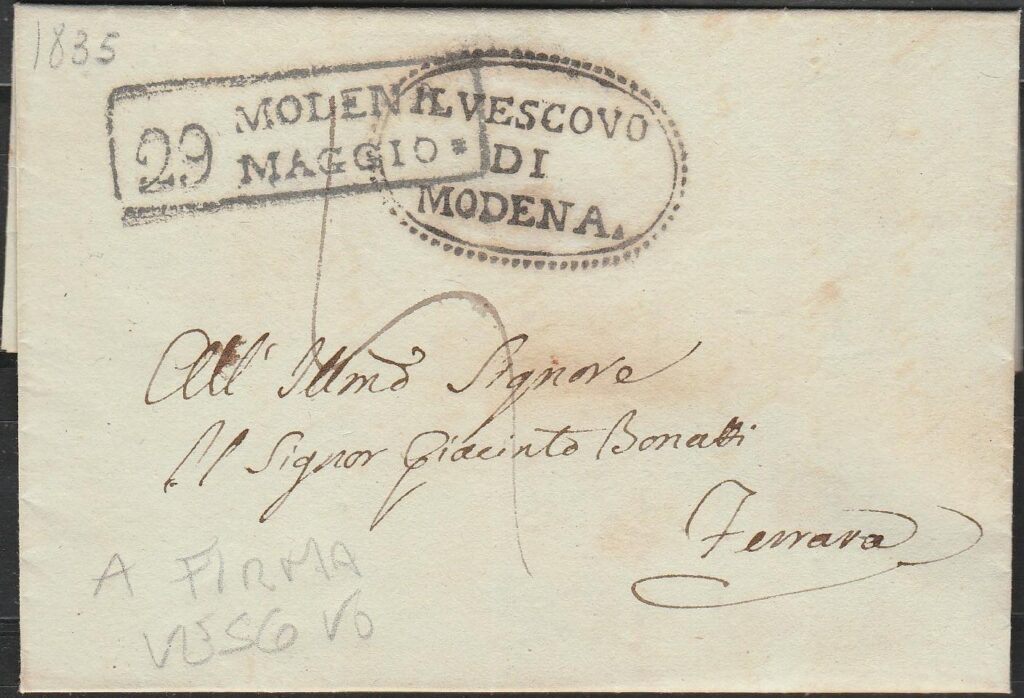 1835
29 MODENA
MAGGIO*
IL VESCOVO
DI
MODENA.
All' Illmo Signore
Il Signor Giacinto Bonatti
Ferrara
A FIRMA
VESCOVO